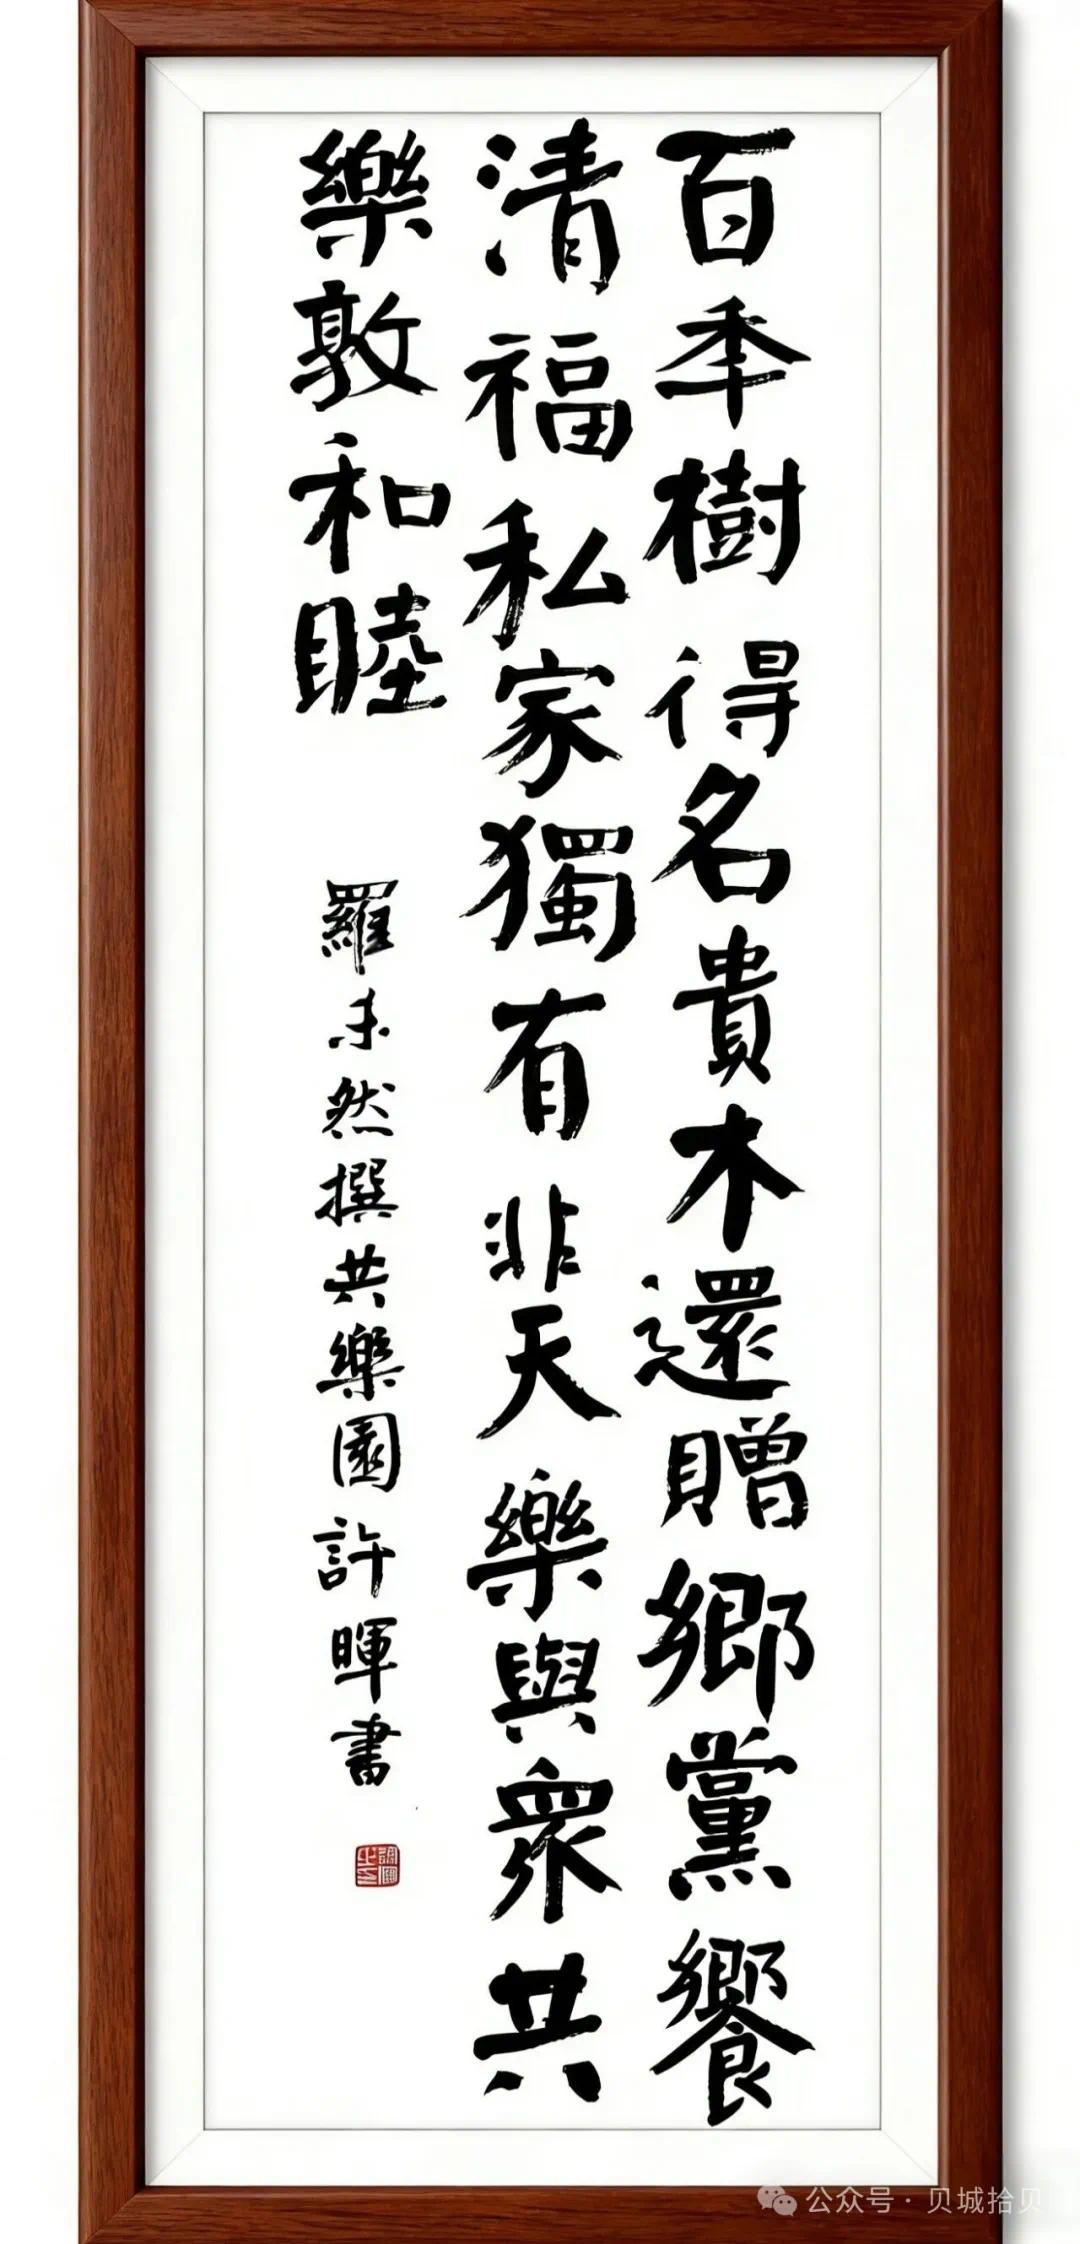 百年樹得名貴木還贈鄉黨饗
清福私家獨有非天樂與衆共
樂敦和睦
羅未然撰共樂園許暉書
公众号·贝城拾贝